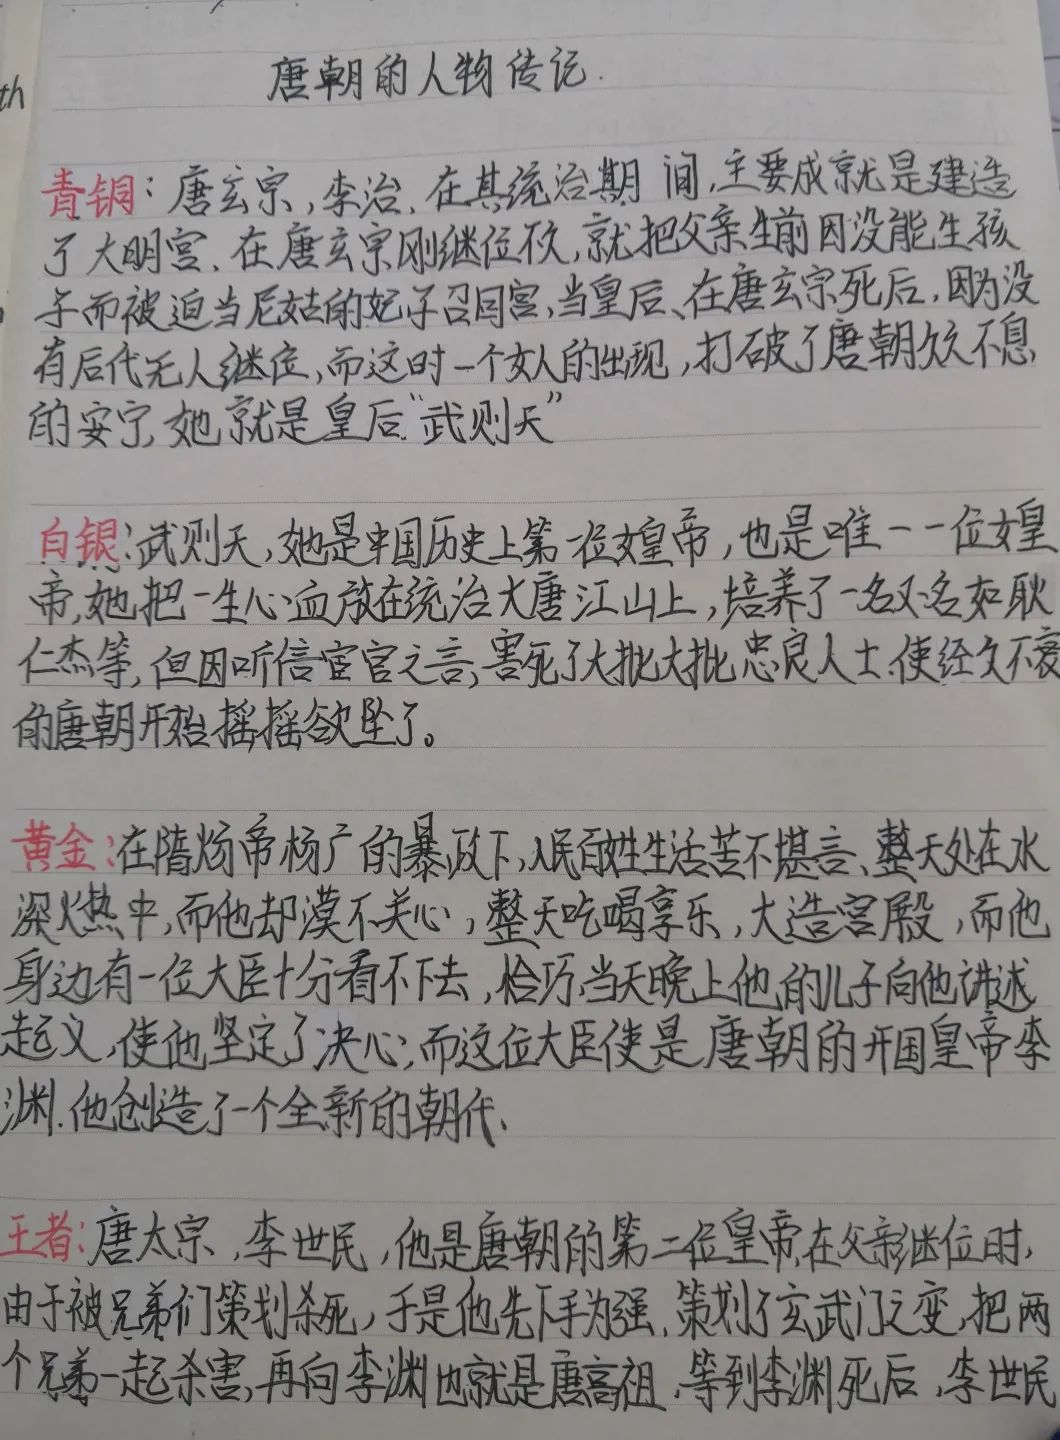 th
唐朝的人物传记.
青铜：唐玄宗，李治，在其统治期间，主要成就是建造
了大明宫、在唐玄宗刚继位不久，就把父亲生前因没能生孩
子而被迫当尼姑的妃子召回宫，当皇后、在唐玄宗死后，因为没
有后代无人继位，而这时一个女人的出现，打破了唐朝久久不息
的安宁，她就是皇后“武则天”
白银：武则天，她是中国历史上第一位女皇帝，也是唯一一位女皇
帝，她把一生心血放在统治大唐江山上，培养了一名又名如耿
仁杰等，但因听信宦官之言，害死了大批大批忠良人士.使经久不衰
的唐朝开始摇摇欲坠了。
黄金：在隋炀帝杨广的暴政下，人民百姓生活苦不堪言、整天处在水
深火热中，而他却漠不关心，整天吃喝享乐，大造宫殿，而他
身边有一位大臣十分看不下去，恰巧，当天晚上他的儿子向他讲述
起义，使他坚定了决心；而这位大臣使是唐朝的开国皇帝李
渊.他创造了一个全新的朝代、
王者：唐太宗，李世民，他是唐朝的第二位皇帝，在父亲继位时，
由于被兄弟们策划杀死，于是他先下手为强，策划了玄武门之变，把两
个兄弟一起杀害，再向李渊也就是唐高祖，等到李渊死后，李世民